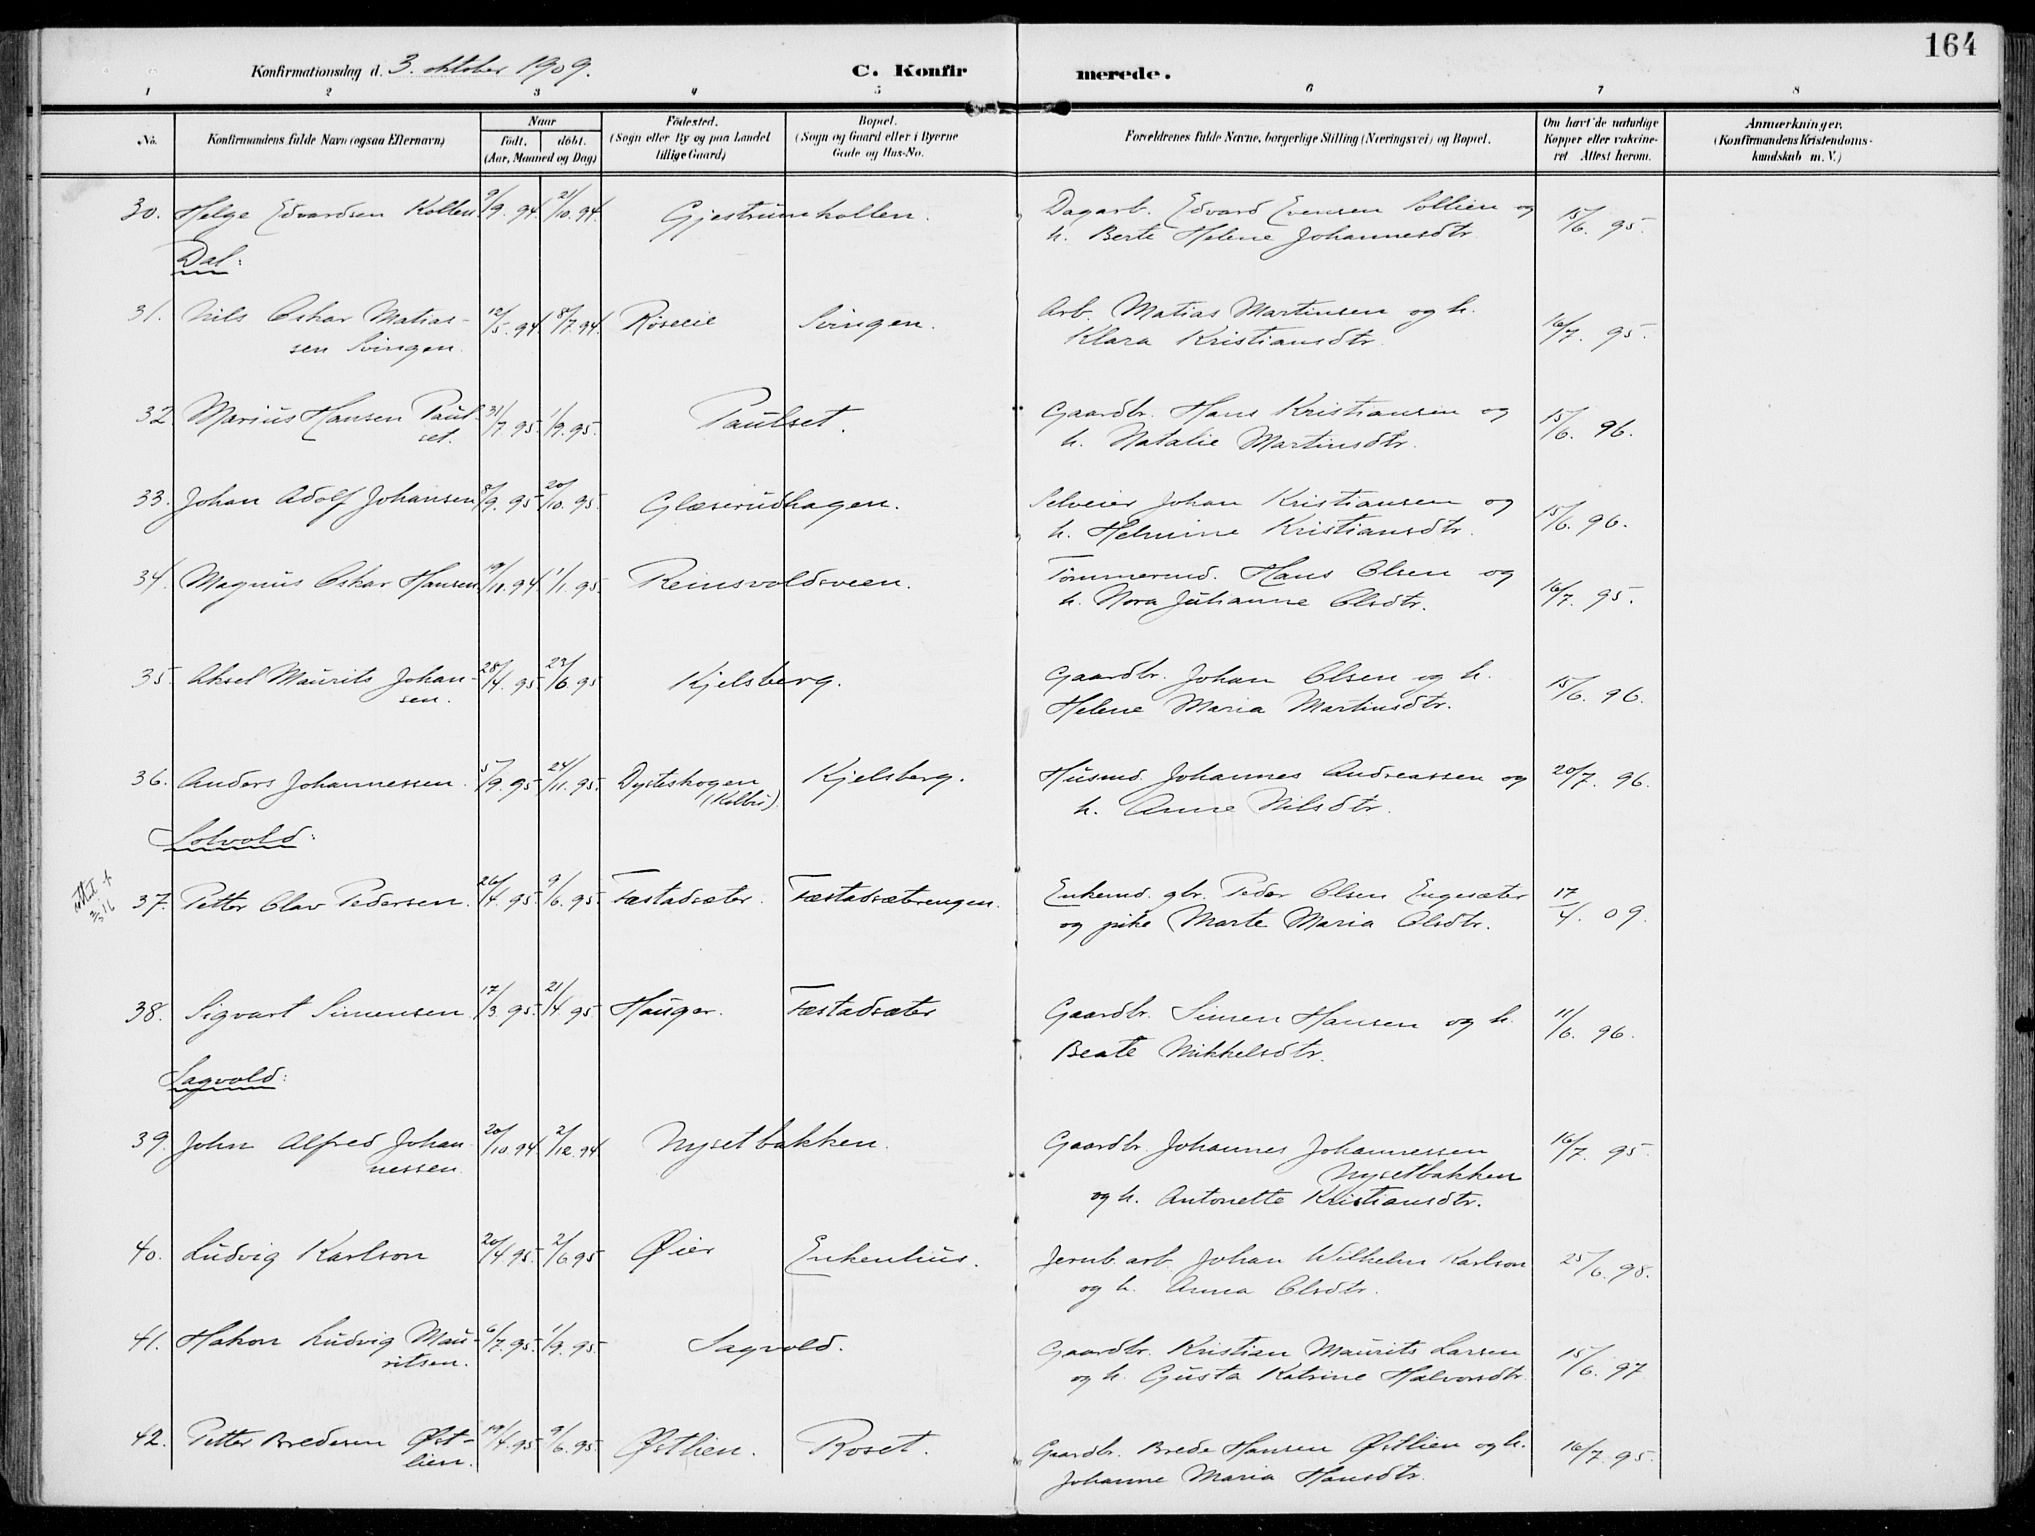 164
Konfirmationsdag d. 3. oktober 1909. C. Konfirmerede.
1 2 3 4 5 6 7 8
No. Konfirmandens fulde Navn (ogsaa Efternavn) Naar født. døbt. (Aar, Maaned og Dag) Fødested. (Sogn eller By og paa Landet tillige Gaard) Bopæl. (Sogn og Gaard eller i Byerne Gade og Hus-No. Forældrenes fulde Navne, borgerlige Stilling (Næringsvei) og Bopæl. Om havt de naturlige Kopper eller vakcineret Attest herom. Anmærkninger. (Konfirmandens Kristendomskundskab m. V.)
30. Helge Edvardsen Kollen 9/9. 94. 21/10. 94. Gjestrumkollen. Dagarb. Edvard Evensen Sollien og 15/6. 95.
h. Berte Helene Johannesdtr.
Dal:
31. Nils Oskar Matias- 12/5. 94. 8/7. 94. Røseeie Svingen. Arb. Matias Martinsen og h. 16/7. 95.
sen Svingen. Klara Kristiansdtr.
32. Marius Hansen Paul- 31/7. 95. 1/9. 95. Paulset. Gaardbr. Hans Kristiansen og 15/6. 96.
set. h. Natalie Martinsdtr.
33. Johan Adolf Johansen 8/9. 95. 20/10. 95. Glæserudhagen. Selveier Johan Kristiansen og 15/6. 96.
h. Helmine Kristiansdtr.
34. Magnus Oskar Hansen 19/11. 94. 1/1. 95. Reinsvoldsveen. Tømmermd. Hans Olsen og 16/7. 95.
h. Nora Juhanne Olsdtr.
35. Aksel Maurits Johan- 28/4. 95. 23/6. 95 Kjelsberg. Gaardbr. Johan Olsen og h. 15/6. 96.
sen. Helene Maria Martinsdtr.
36. Anders Johannessen. 5/9. 95. 24/11. 95. Dysteskogen Kjelsberg. Husmd. Johannes Andreassen og 20/7. 96.
(Kolbu). h. Anne Nilsdtr.
Solvold:
37. Petter Olav Pedersen. 26/4. 95. 9/6. 95. Fæstadsæter. Fæstadsæterengen. Enkemd. gbr. Peder Olsen Engesæter 17/4. 09.
og pike Marte Maria Olsdtr.
38. Sigvart Simensen 17/3. 95. 21/4. 95 Hauger. Fæstadsæter Gaardbr. Simen Hansen og h. 11/6. 96.
Beate Mikkelsdtr.
Sagvold:
39. John Alfred Johan 20/10. 94. 2/12. 94 Nysetbakken. Gaardbr. Johannes Johannessen 16/7. 95
nessen. Nysetbakken
og h. Antonette Kristiansdtr.
40. Ludvig Karlson 20/4. 95. 2/6. 95 Øier Enkenhus. Jernb. arb. Johan Wilhelm Karlson 25/6. 98.
og h. Anna Olsdtr.
41. Hakon Ludvig Mau- 6/7. 95. 1/9. 95. Sagvold. Gaardbr. Kristian Maurits Larsen 15/6. 97
ritsen. og h. Gusta Katrine Halvorsdtr.
42. Petter Bredesen Øst- 19/4. 95. 9/6. 95. Østlien. Roset. Gaardbr. Brede Hansen Østlien og h. 16/7. 95.
lien. Johanne Maria Hansdtr.